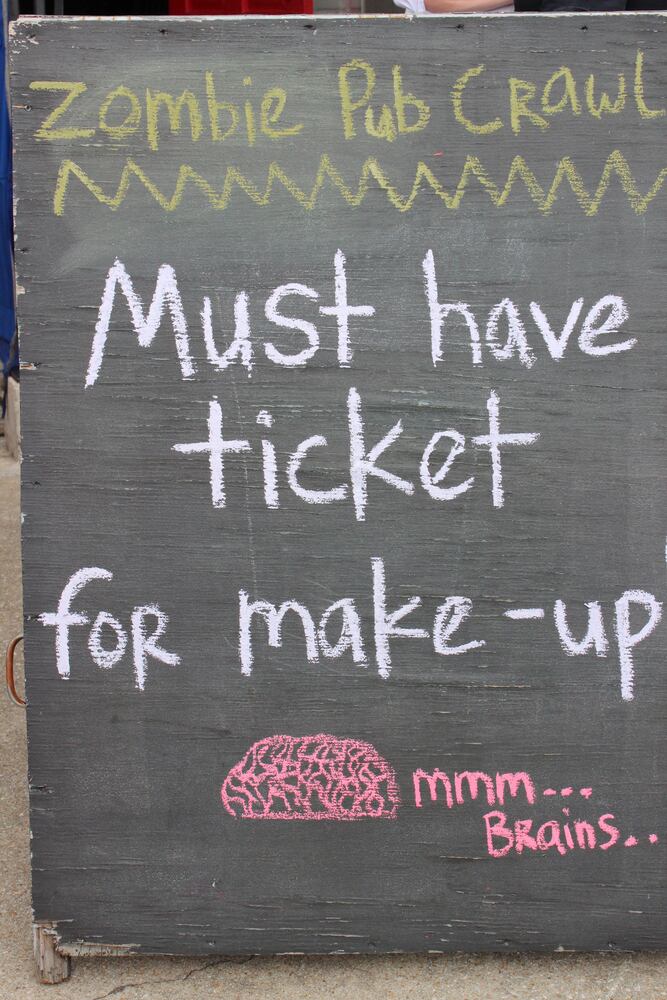 Zombie Pub Crawl
Must have
ticket
for make-up
mmm...
Brains..